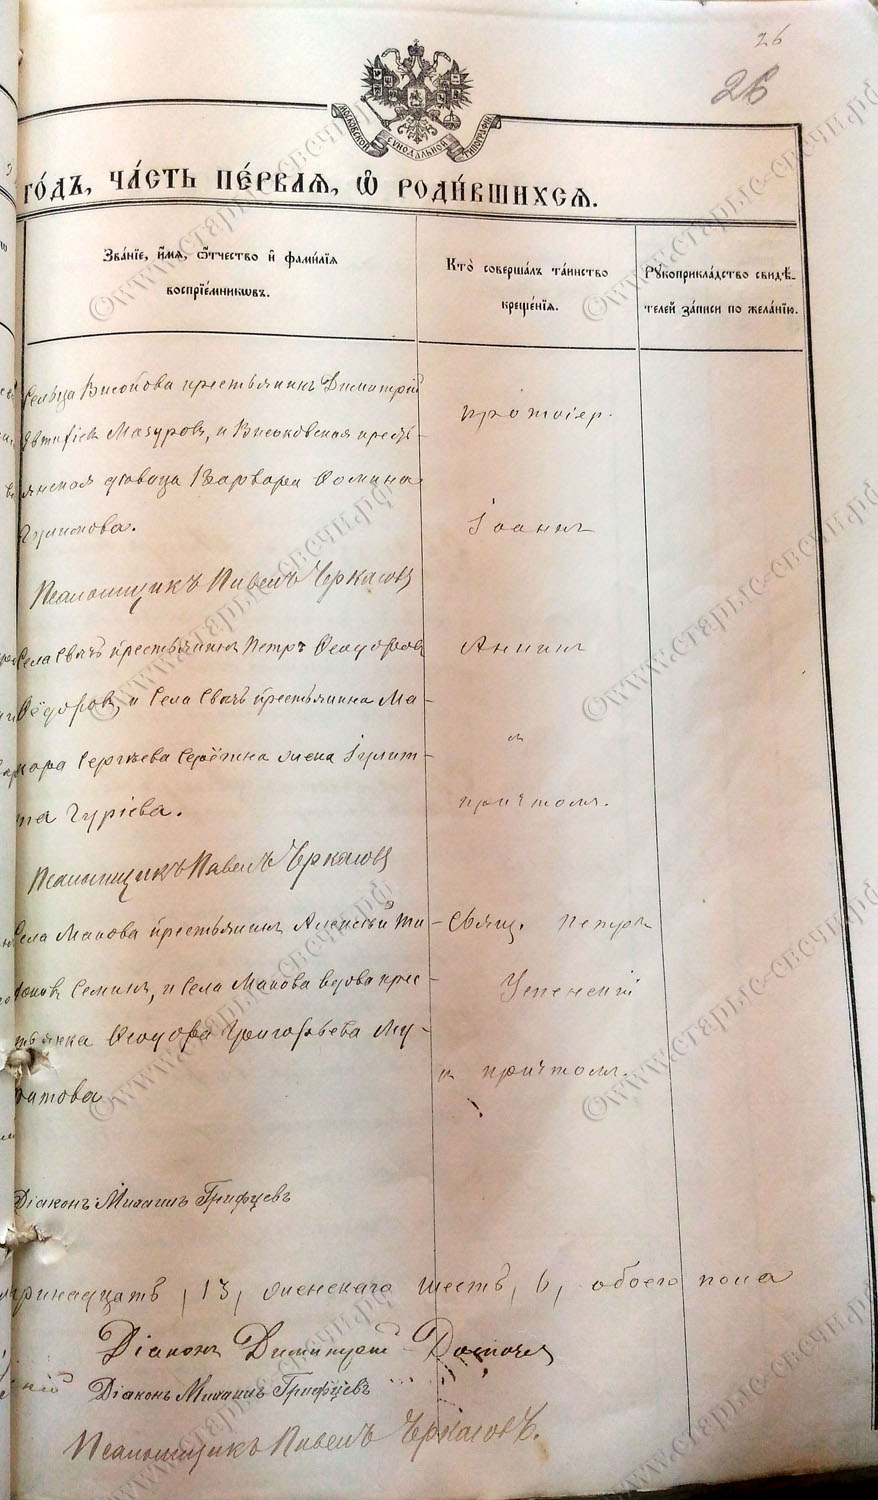 26
26
МОСКОВСКОЙ СѴНОДАЛЬНОЙ ТИПОГРАФІИ
ГО́ДЪ, ЧА́СТЬ ПЕ́РВАЯ, Ѽ РОДИ́ВШИХСЯ.
Зва́нїе, и҆́мѧ, ѻ҆́тчество и҆ фами́лїѧ
воспрїе́мникѡвъ.
Кто̀ соверша́лъ та́инство
креще́нїѧ.
Рꙋкоприкла́дство свидѣ́-
телей за́писи по жела́нїю.
Сельца крестьянинъ Димитрій
Мазуровъ, и Високовская кресть-
янская дѣвица Варвара Ѳомина
Протоіер.
Іоаннъ
Псаломщикъ Павелъ Черкасовъ
Села крестьянинъ Петръ Ѳеодоровъ
Ѳёдоровъ, и Села крестьянина Ма-
Сергѣева жена Іулит-
та Гуріева.
Аннинъ
съ
причтомъ.
Псаломщикъ Павелъ Черкасовъ
Села Макова крестьянинъ Алексѣй Ти-
Семинъ, и Села Макова вдова крес-
тьянка Ѳеодора Григорьева Му-
ратова
Свящ. Петръ
Успенскій
съ причтомъ.
Діаконъ Михаилъ Грифцевъ
тринадцать, 13, женскаго шесть, 6, обоего пола
Діаконъ Димитрій
Діаконъ Михаилъ Грифцевъ
Псаломщикъ Павелъ Черкасовъ.
©www.старые-свечи.рф